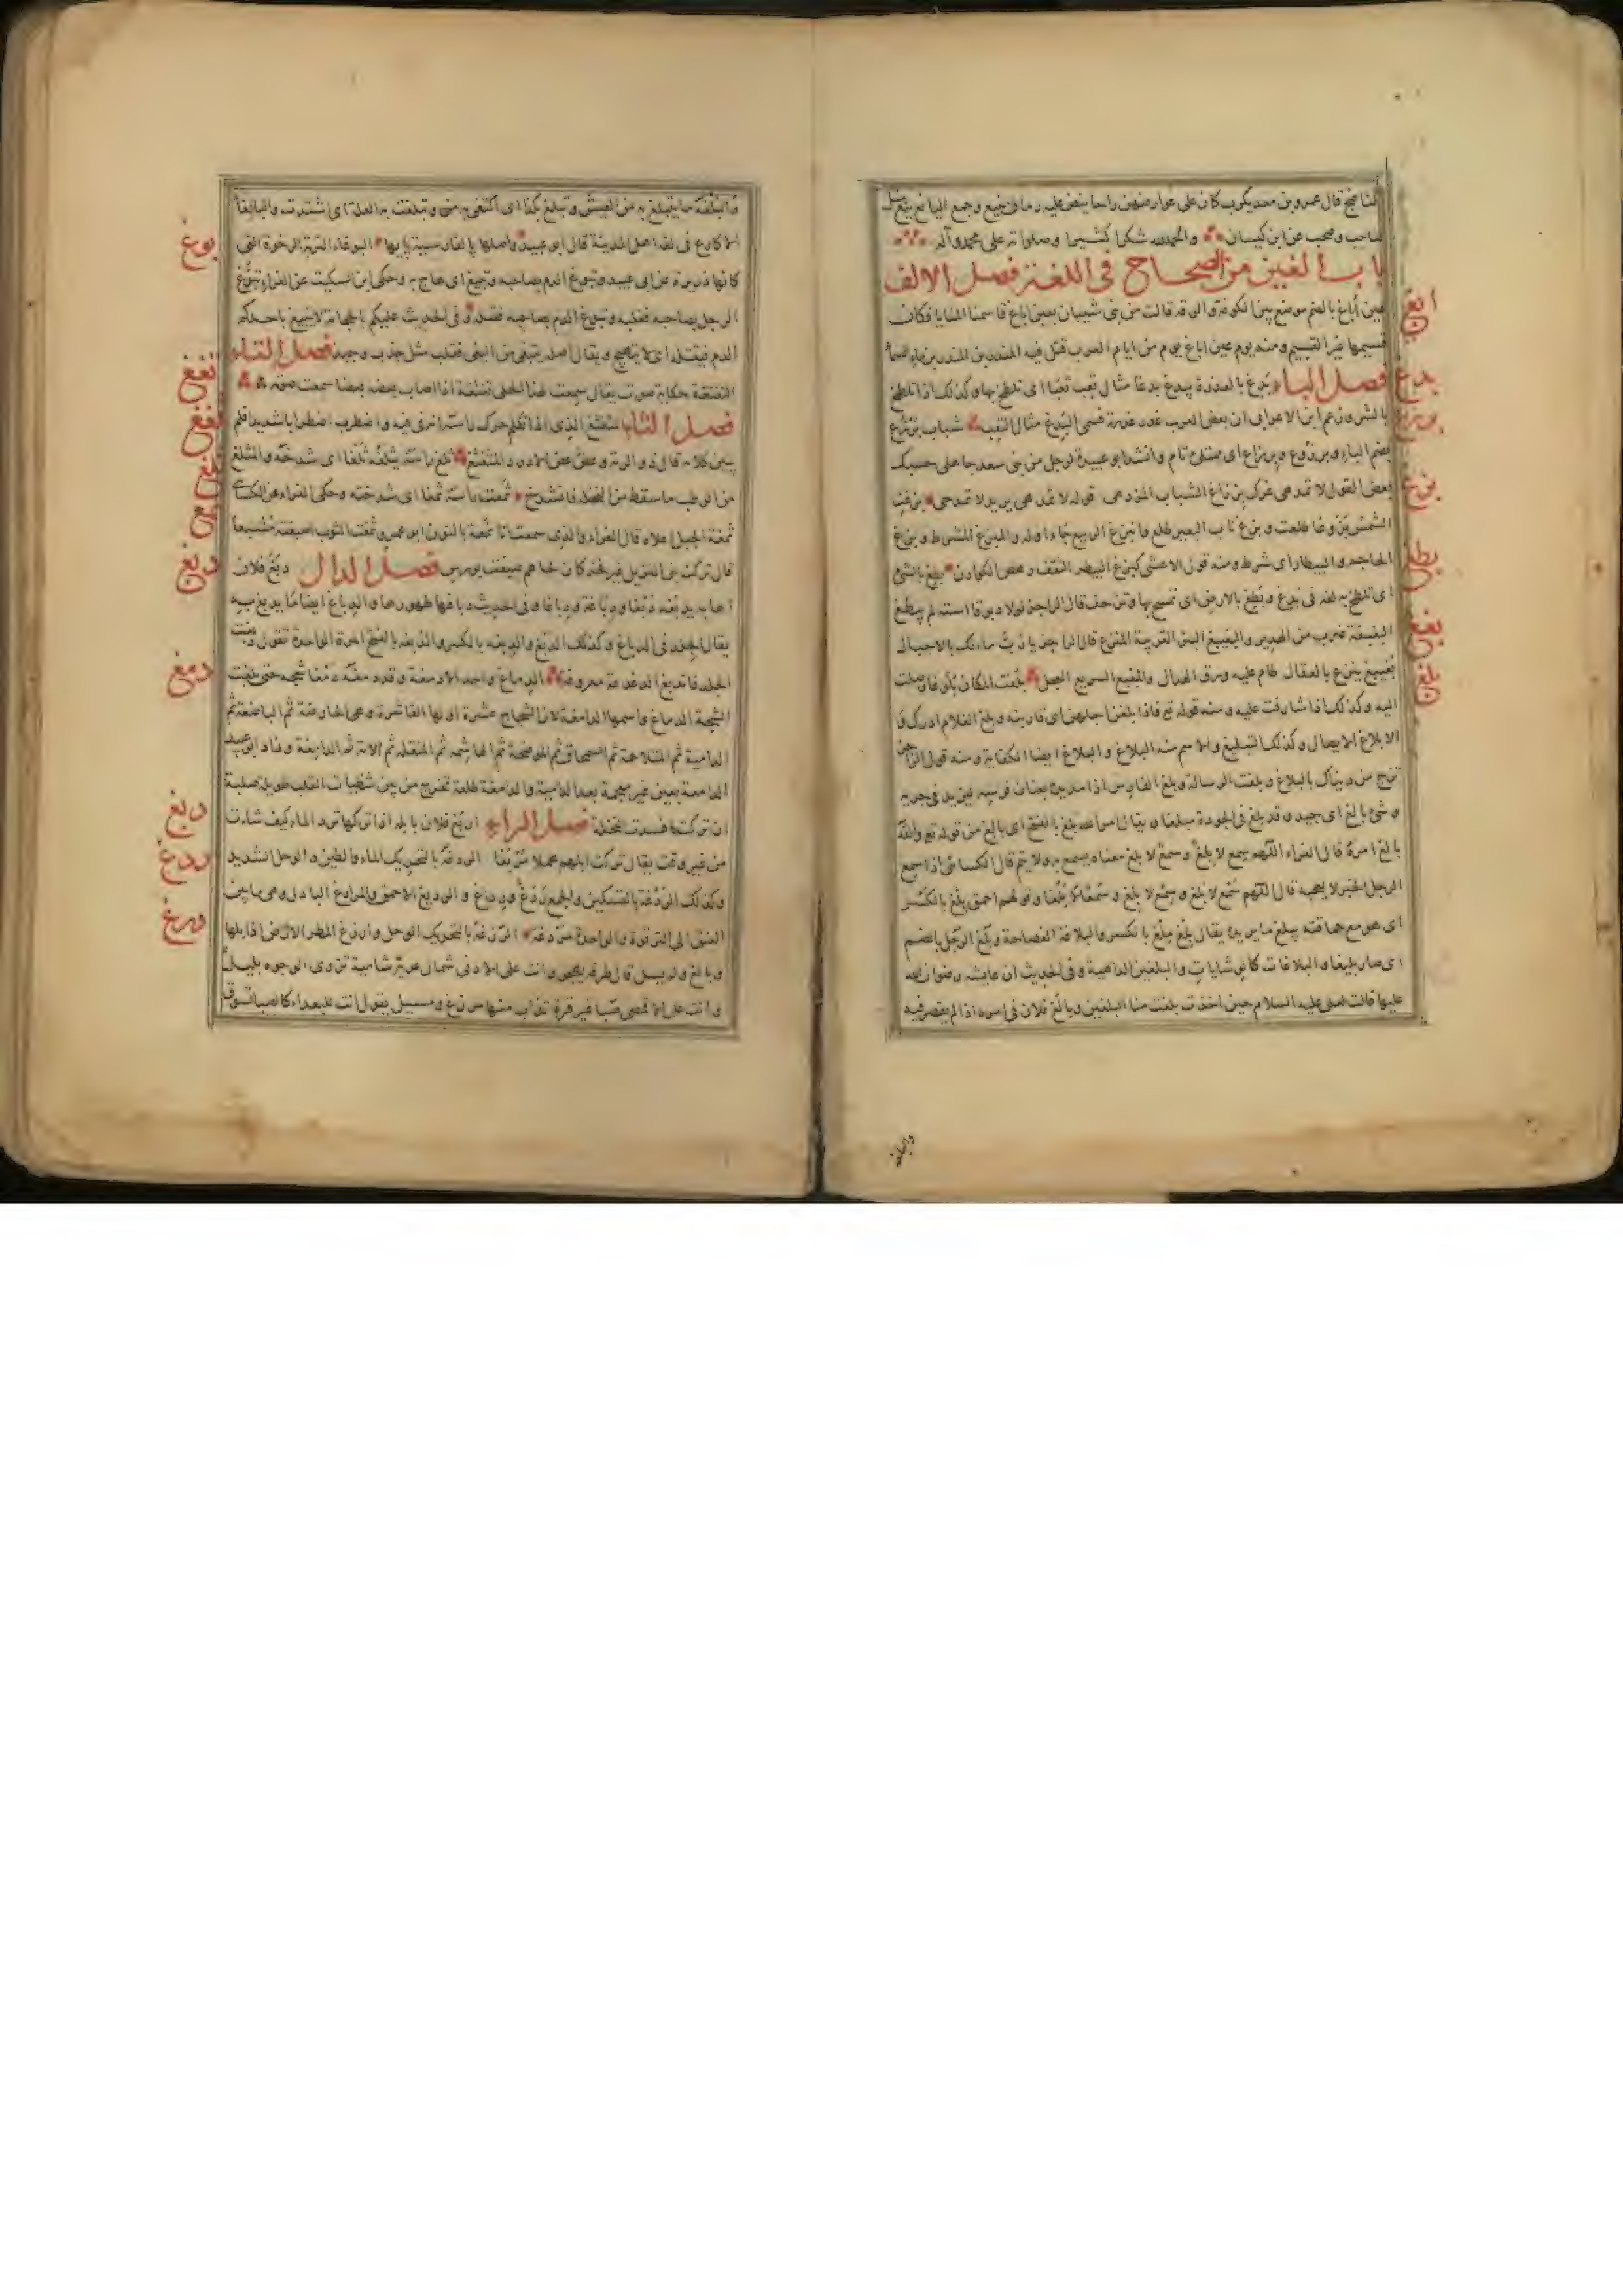 الناضج قال عمرو بن معديكرب كان على عوارضهن راحا يفض عليه رمان ينيع وجمع اليانع ينع مثل
صاحب وصحب عن ابن كيسان والحمد لله شكرا كثيرا وصلواته على محمد وآله
باب الغين من الصحاح في اللغة فصل الالف
ابغ
عين اباغ بالضم موضع بين الكوفة والرقة قالت من بنى شيبان بعين اباغ قاسمنا المنايا فكان
قسيمها خير القسيم ومنه يوم عين اباغ يوم من ايام العرب قتل فيه المنذر بن المنذر بن ماء السماء
بدغ
فصل الباء بدغ بالعذرة يبدغ بدغا مثال تعب تعبا اى تلطخ بها وكذلك اذا تلطخ
برزغ
بالشر وزعم ابن الاعرابى ان بعض العرب عذرة فسمى البدغ مثال التعب شباب برزغ
بضم الباء وبرزوغ وبرزاغ اى ممتلئ تام وانشد ابو عبيدة لرجل من بنى سعد جاهلى حسبك
بزغ
بعض القول لا تمدهى غرك برزاغ الشباب المزدهى قوله لا تمدهى يريد لا تمدحى بزغت
الشمس بزوغا طلعت وبزغ ناب البعير طلع وابتزغ الربيع جاء اوله والمبزغ المشرط وبزغ
بطغ
الحاجم والبيطار اى شرط ومنه قول الاعشى كبزغ البيطر الثقف رهص الكوادن بطغ بالشئ
اى تلطخ به لغة فى بدغ وبطغ بالارض اى تمسح بها وتزحف قال الراجز لولا دبوقا استه لم يبطغ
بغغ
البغبغة ضرب من الهدير والبغيبغ البئر القريبة المنزع قال الراجز يا رب ماء لك بالاجبال
بلغ
بغيبغ ينزع بالعقال طام عليه ورق الهدال والمبغبغ السريع العجل بلغت المكان بلوغا وصلت
اليه وكذلك اذا شارفت عليه ومنه قوله تع فاذا بلغن اجلهن اى قاربنه وبلغ الغلام ادرك و
الابلاغ الايصال وكذلك التبليغ والاسم منه البلاغ والبلاغ ايضا الكفاية ومنه قول الراجز
تزج من دنياك بالبلاغ وبلغت الرسالة وبلغ الفارس اذا مد يده بعنان فرسه ليزيد فى جريه
وشئ بالغ اى جيد وقد بلغ فى الجودة مبلغا ويقال امر الله بلغ بالفتح اى بالغ من قوله تع والله
بالغ امره قال الفراء اللهم سمع لا بلغ وسمع لا بلغ معناه يسمع به ولا يتم قال الكسائى اذا سمع
الرجل الخبر لا يعجبه قال اللهم سمع لا بلغ وسمع لا بلغ وسمعا لا بلغا وقولهم احمق بلغ بالكسر
اى هو مع حماقته يبلغ ما يريده يقال بلغ ملغ بالكسر والبلاغة الفصاحة وبلغ الرجل بالضم
اى صار بليغا والبلاغات كالوشايات والبلغين الداهية وفى الحديث ان عايشه رضوان الله
عليها قالت لعلى عليه السلام حين اخذت بلغت منا البلغين وبالغ فلان فى امره اذا لم يقصر فيه
والبلغة
والبلغة ما يتبلغ به من العيش وتبلغ بكذا اى اكتفى به وتبلغت به العلة اى اشتدت والبالغاء
بوغ
الاكارع فى لغة اهل المدينة قال ابو عبيد واصلها بالفارسية پايها البوغاء التربة الرخوة التى
كانها ذريرة عن ابى عبيد وتبوغ الدم بصاحبه وتبيغ اى هاج به وحكى ابن السكيت عن الفراء تبوغ
الرجل بصاحبه فغلبه وتبوغ الدم بصاحبه فقتله وفى الحديث عليكم بالحجامة لا يتبيغ باحدكم
الدم فيقتله اى لا يتهيج ويقال اصله يتبغى من البغى فقلب مثل جذب وجبذ فصل التاء
تغغ
التغتغة حكاية صوت يقال سمعت لهذا الحلى تغتغة اذا اصاب بعضه بعضا سمعت صوته
ثغغ
فصل الثاء المثغثغ الذى اذا تكلم حرك اسنانه فى فيه واضطرب اضطرابا شديدا فلم
ثلغ
يبين كلامه قال رؤبة وعض عض الادرد المثغثغ ثلغ راسه يثلغه ثلغا اى شدخه والمثلغ
ثمغ
من الرطب ما سقط من النخلة فانشدخ ثمغت راسه ثمغا اى شدخته وحكى الفراء عن الكسائى
ثمغة الجبل اعلاه قال الفراء والذى سمعت انا نمغة بالنون ابو عمرو ثمغت الثوب اصبغته مشبعا
دبغ
قال تركت بنى الغزيل غير فخر كان لحاهم ثمغت بورس فصل الدال دبغ فلان
اهابه يدبغه دبغا ودباغة ودباغا وفى الحديث دباغها طهورها والدباغ ايضا ما يدبغ به
يقال الجلد فى الدباغ وكذلك الدبغ والدبغة بالكسر والدبغة بالفتح المرة الواحدة تقول دبغت
دمغ
الجلد فاندبغ الدغدغة معروفة الدماغ واحد الادمغة وقد دمغه دمغا شجه حتى بلغت
الشجة الدماغ واسمها الدامغة لان الشجاج عشرة اولها القاشرة وهى الحارصة ثم الباضعة ثم
الدامية ثم المتلاحمة ثم السمحاق ثم الموضحة ثم الهاشمة ثم المنقلة ثم الآمة ثم الدامغة وزاد ابو عبيد
الدامعة بعين غير معجمة بعد الدامية والدامغة طلعة تخرج من بين شظيات القلب طويلة صلبة
ربغ
ان تركت افسدت النخلة فصل الراء اربغ فلان بابله اذا تركها ترد الماء كيف شاءت
ردغ
من غير وقت يقال تركت ابلهم هملا مربغا الردغة بالتحريك الماء والطين والوحل الشديد
وكذلك الردغة بالتسكين والجمع ردغ ورداغ والرديغ الاحمق والمرادغ البادل وهى ما بين
رزغ
العنق الى الترقوة والواحدة مردغة الرزغة بالتحريك الوحل وارزغ المطر الارض اذا بلها
وبالغ ولم يسل قال طرفة يهجو وانت على الادنى شمال عرية شامية تزوى الوجوه بليل
وانت على الاقصى صبا غير قرة تذاءب منها مرزغ ومسيل يقول انت للبعداء كالصبا تسوق